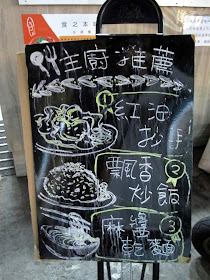 食之本味
主廚推薦
1
紅油
抄手
飄香
2
炒飯
麻醬
3
乾麵